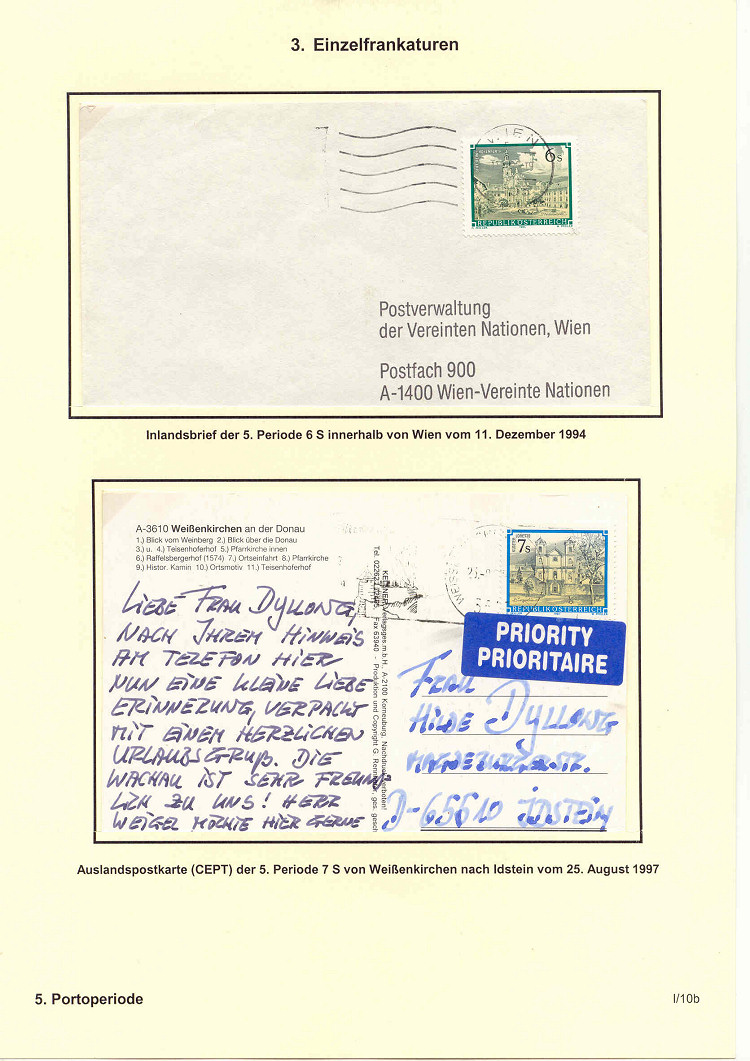 3. Einzelfrankaturen
WIEN
6s
REPUBLIK ÖSTERREICH
Postverwaltung
der Vereinten Nationen, Wien
Postfach 900
A-1400 Wien-Vereinte Nationen
Inlandsbrief der 5. Periode 6 S innerhalb von Wien vom 11. Dezember 1994
A-3610 Weißenkirchen an der Donau
1.) Blick vom Weinberg 2.) Blick über die Donau
3.) u. 4.) Teisenhoferhof 5.) Pfarrkirche innen
6.) Raffelsbergerhof (1574) 7.) Ortseinfahrt 8.) Pfarrkirche
9.) Histor. Kamin 10.) Ortsmotiv 11.) Teisenhoferhof
LIEBE FRAU DYLLONG,
NACH IHREM HINWEIS
AM TELEFON HIER
NUN EINE KLEINE LIEBE
ERINNERUNG, VERPACKT
MIT EINEM HERZLICHEN
URLAUBSGRUß. DIE
WACHAU IST SEHR FREUND
LICH ZU UNS! HERR
WEIGEL MÖCHTE HIER GERNE
Verlagsges.m.b.H., A-2100 Korneuburg. Nachdruck verboten!
Fax 63940 - Produktion und Copyright G. gesch
WEISS
7s
REPUBLIK ÖSTERREICH
PRIORITY
PRIORITAIRE
FRAU
HILDE DYLLONG
D-65510 IDSTEIN
Auslandspostkarte (CEPT) der 5. Periode 7 S von Weißenkirchen nach Idstein vom 25. August 1997
5. Portoperiode
I/10b